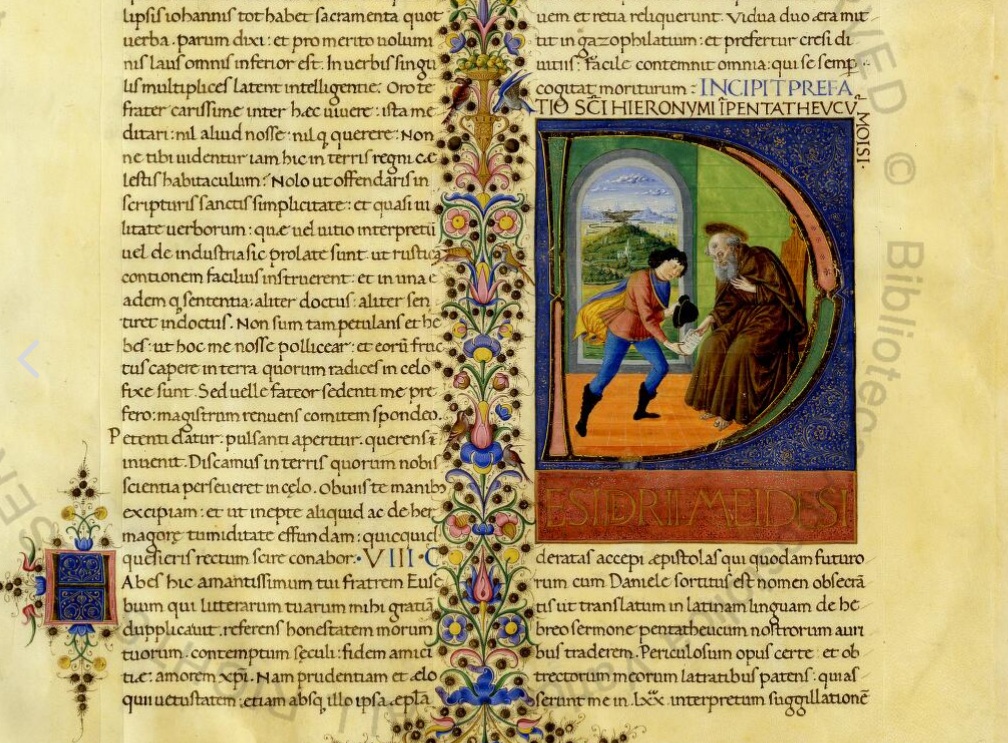 lipsis iohannis tot habet sacramenta quot
uerba. parum dixi: et pro merito uolumi
nis laus omnis inferior est. In uerbis singu
lis multiplices latent intelligentie. Oro te
frater carissime inter hæc uiuere: ista me
ditari: nil aliud nosse: nil q querere: Non
ne tibi uidentur iam hic in terris regni cæ
lestis habitaculum? Nolo ut offendaris in
scripturis sanctis simplicitate: et quasi ui
litate uerborum: quæ uel uitio interpretū
uel de industria sic prolate sunt. ut rusticā
contionem facilius instruerent: et in una e
adem q sententia: aliter doctus: aliter sen
tiret indoctus. Non sum tam petulans et he
bes: ut hoc me nosse pollicear: et eorū fruc
tus capere in terra quorum radices in celo
fixe sunt. Sed uelle fateor sedenti me pre
fero: magistrum renuens comitem spondeo.
Petenti datur. pulsanti aperitur. querens ī
inuenit. Discamus in terris quorum nobis
scientia perseueret in cęlo. Obuiis te manib
excipiam: et ut inepte aliquid ac de her
magoræ tumiditate effundam: quicquid
quesieris rectum scire conabor. VIII. C
H
Abes hic amantissimum tui fratrem Euse
bium qui litterarum tuarum mihi gratiā
dupplicauit. referens honestatem morum
tuorum. contemptum seculi: fidem amici
tiæ: amorem xpi. Nam prudentiam et ælo
quii uetustatem: etiam absq illo ipsa. epła
uem et retia reliquerunt. Vidua duo æra mit
tit in gazophilatium: et prefertur cresi di
uitiis: facile contemnit omnia: qui se semp
cogitat moriturum: INCIPIT PREFA
TIO SCI HIERONYMI ĪPENTATHEVCV̄
MOISI.
D
ESIDRII MEI DESI
deratas accepi æpistolas qui quodam futuro
rum cum Daniele sortitus est nomen obsecrā
tis ut translatum in latinam linguam de he
breo sermone pentatheucum nostrorum auri
bus traderem. Periculosum opus certe: et ob
trectorum meorum latratibus patens: qui as
serunt me in. lxx. interpretum suggillationē
© Bibliotec